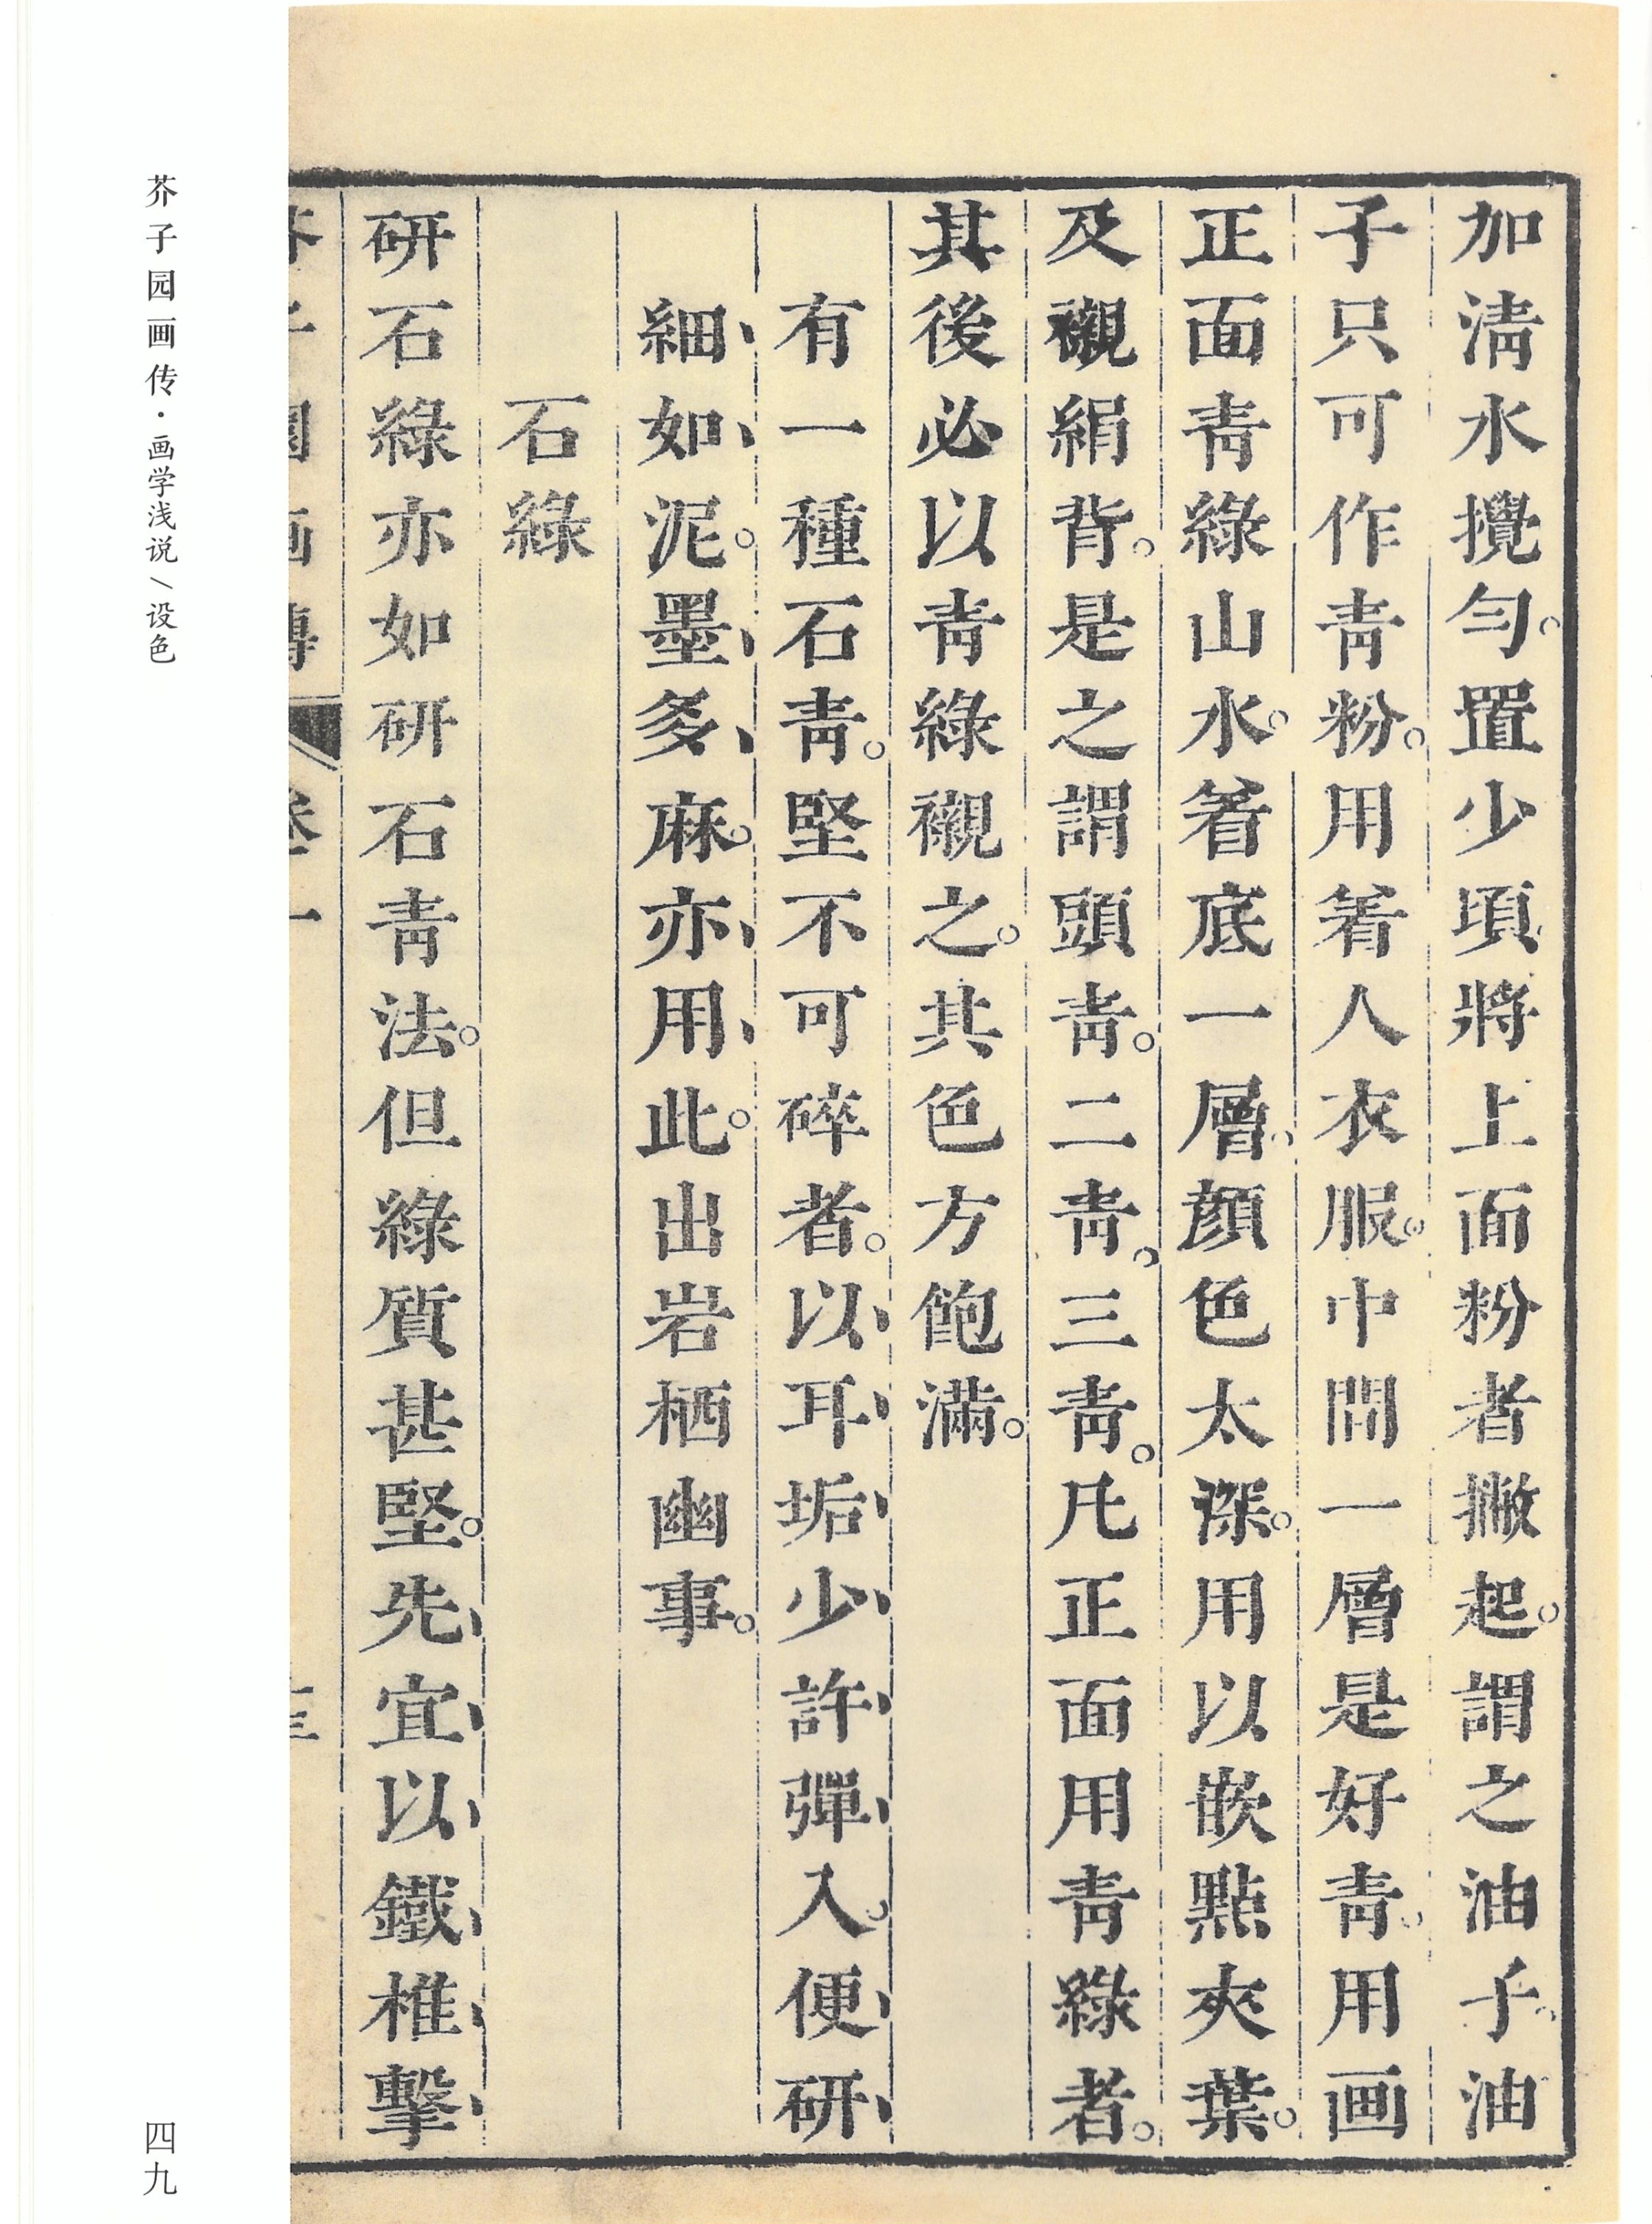 加淸水攪勻。置少頃將上面粉者撇起。謂之油子。油
子只可作靑粉。用着人衣服。中間一層是好靑。用画
正面靑綠山水。着底一層。顔色太深。用以嵌點夾葉。
及襯絹背。是之謂頭靑。二靑。三靑。凡正面用靑綠者。
其後必以靑綠襯之。其色方飽滿。
有一種石靑。堅不可碎者。以、耳、垢、少、許、彈、入。便、研、
細、如、泥。墨、多、麻。亦、用、此。出岩栖幽事。
石綠
研石綠亦如研石靑法。但綠質甚堅。先、宜、以、鐵、椎、擊、
芥子园画传·画学浅说/设色
四九